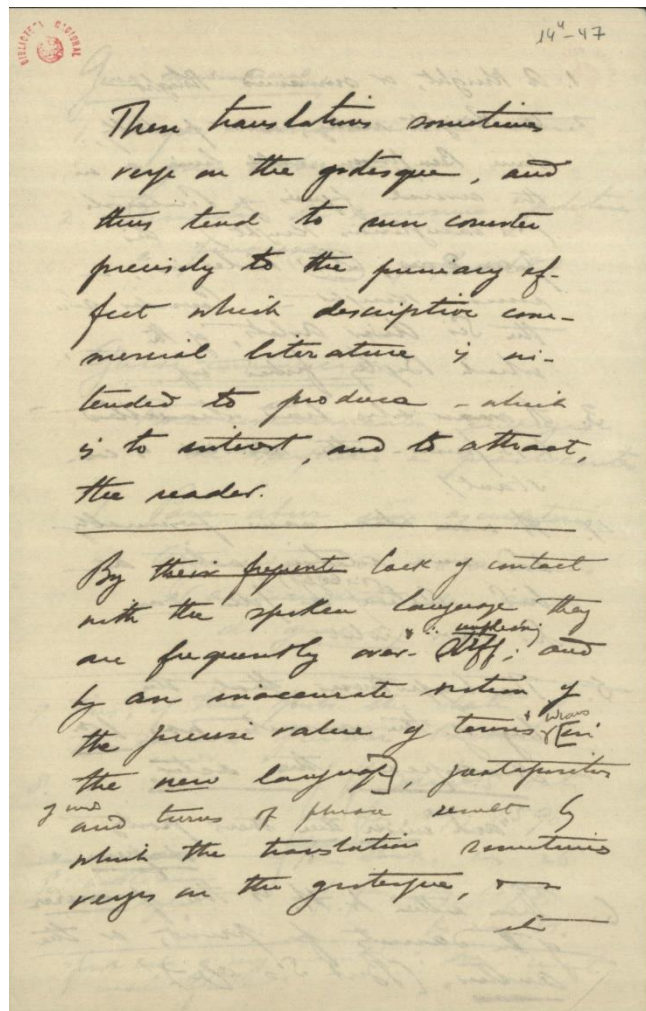 BIBLIOTECA NACIONAL
14⁴-47
These translations sometimes
verge on the grotesque, and
thus tend to run counter
precisely to the primary ef-
fect which descriptive com-
mercial literature is in-
tended to produce - which
is to interest, and to attract,
the reader.
By their frequent lack of contact
with the spoken language they
are frequently over-stiff; and
by an inaccurate notion of
the precise value of terms [in
the new language], juxtaposition
and turns of phrase result by
which the translation sometimes
verges on the grotesque,